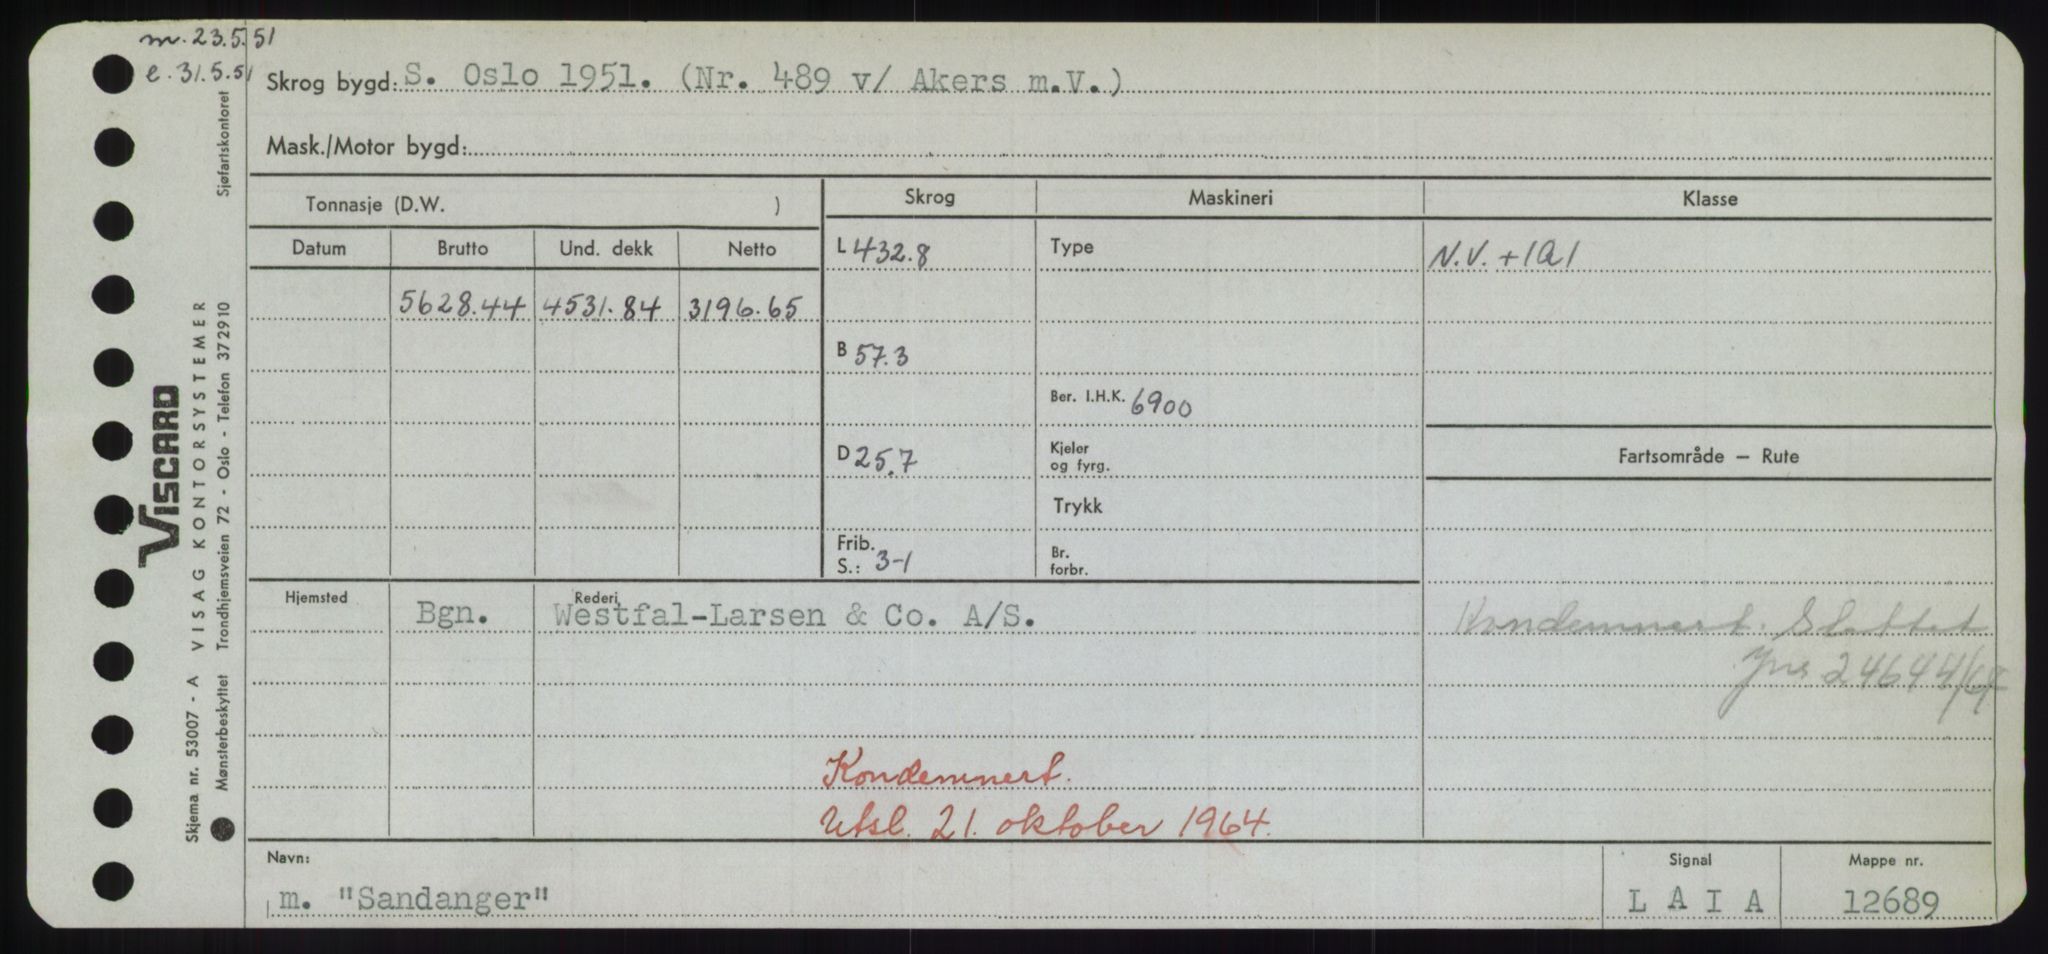 m. 23.5.51
e. 31.5.51
Skrog bygd: S. Oslo 1951. (Nr. 489 v/ Akers m.V.)
Mask./Motor bygd:
Tonnasje (D.W. ) Skrog Maskineri Klasse
Datum Brutto Und. dekk Netto L 432.8 Type N.V. +1A1
5628.44 4531.84 3196.65
B 57.3
Ber. I.H.K. 6900
D 25.7 Kjeler og fyrg. Fartsområde – Rute
Trykk
Frib. S.: 3-1 Br. forbr.
Hjemsted Bgn. Rederi Westfal-Larsen & Co. A/S.
Kondemnert. Slettet
24644/64
Kondemnert.
Utsl. 21. oktober 1964.
Navn: Signal Mappe nr.
m. "Sandanger" L A I A 12689
Sjøfartskontoret
VISCARD
VISAG KONTORSYSTEMER
Trondhjemsveien 72 - Oslo - Telefon 372910
Skjema nr. 53007 - A
Mønsterbeskyttet